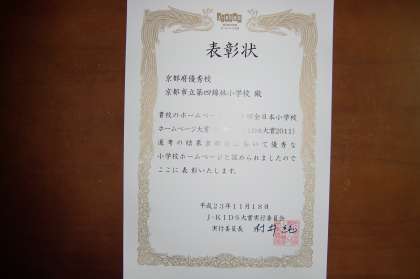 表彰状
京都府優秀校
京都市立第四錦林小学校 殿
貴校のホームページ 全日本小学校
ホームページ大賞 大賞2011)
選考の結果京都 において優秀な
小学校ホームページと認められましたので
ここに表彰いたします。
平成23年11月18日
J-KIDS大賞実行委員会
実行委員長 村井純